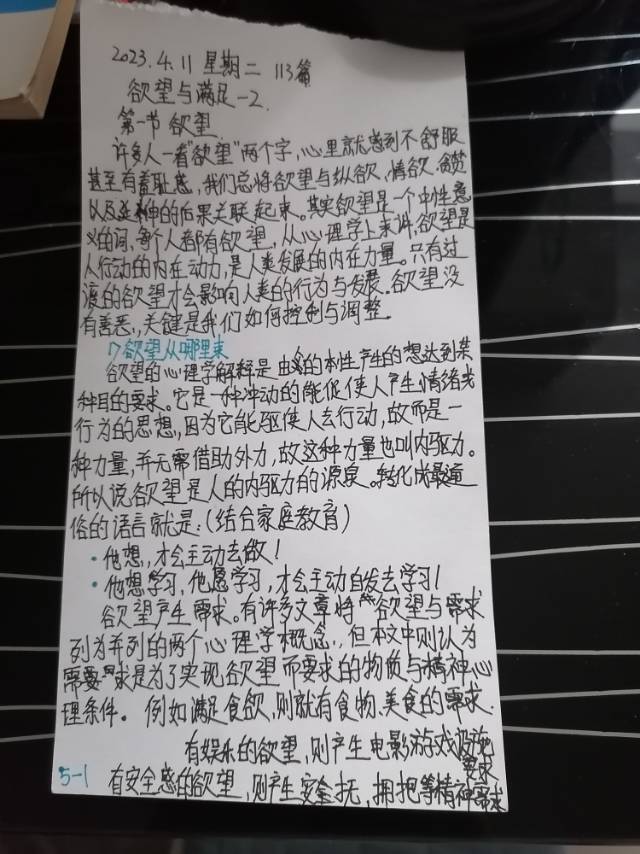 2023.4.11 星期二 113篇
欲望与满足-2.
第一节 欲望
许多人一看"欲望"两个字,心里就感到不舒服
甚至有羞耻感,我们总将欲望与纵欲、情欲、贪婪
以及的后果关联起来。其实欲望是一个中性意
义的词,每个人都有欲望,从心理学上来讲,欲望是
人行动的内在动力,是人类发展的内在力量。只有过
渡的欲望才会影响人类的行为与发展.欲望没
有善恶,关键是我们如何控制与调整
1>欲望从哪里来
欲望的心理学解释是由的本性产生的想达到某
种目的要求。它是一种冲动的能促使人产生情绪或
行为的思想,因为它能驱使人去行动,故而是一
种力量,并无需借助外力,故这种力量也叫内驱力。
所以说欲望是人的内驱力的源泉。转化成最通
俗的语言就是:(结合家庭教育)
·他想,才会主动去做!
·他想学习,他愿学习,才会主动自发去学习!
欲望产生需求。有许多文章将欲望与需求
列为并列的两个心理学概念.,但本文中则认为
需求是为了实现欲望而要求的物质与精神心
理条件。例如满足食欲,则就有食物、美食的需求.
有娱乐的欲望,则产生电影游戏设施
要求
5-1 有安全感的欲望,则产生安全抚,拥抱等精神需求